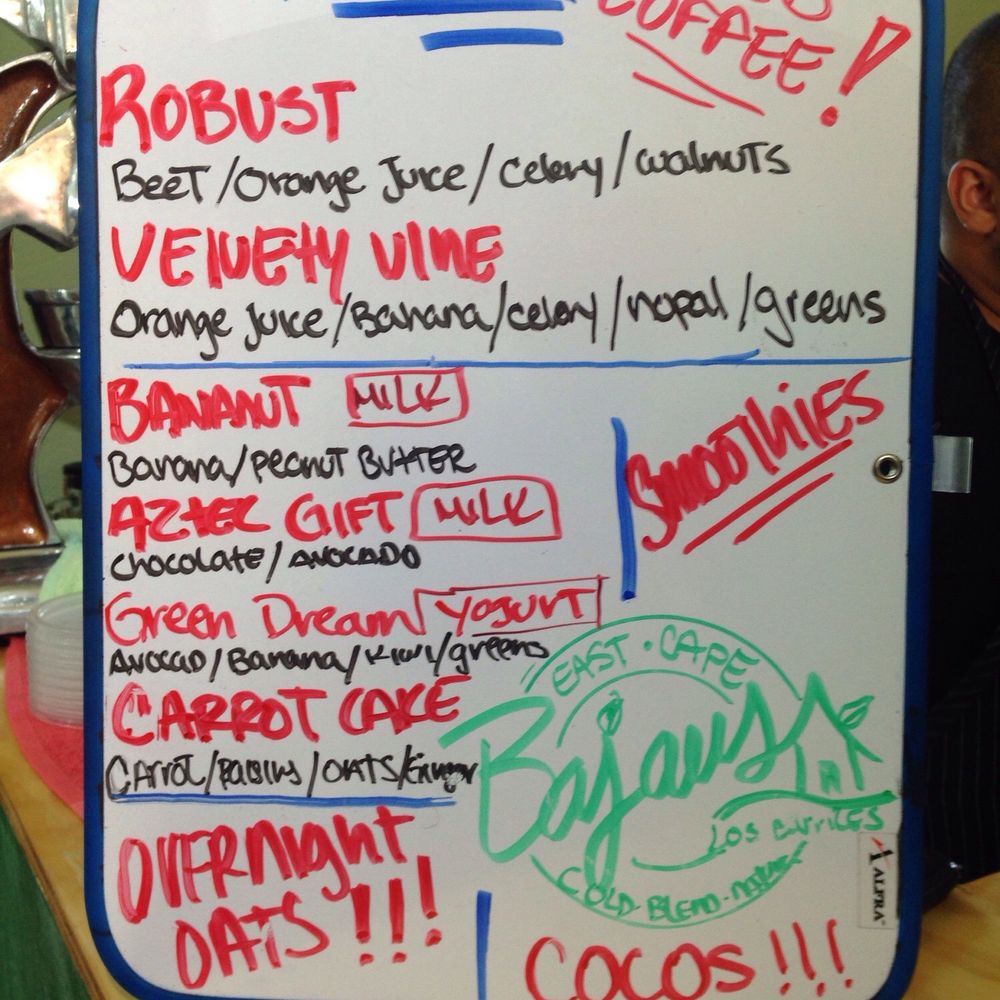 COFFEE!
ROBUST
BEET/Orange Juice/celery/walnuts
VELVETY VINE
Orange Juice/Banana/celery/nopal/greens
BANANUT MILK
Banana/PEANUT BUTTER
AZTEC GIFT MILK
Chocolate/AVOCADO
Green Dream YOGURT
AVOCAD/Banana/KIWI/greens
CARROT CAKE
CARROT/RAISINS/OATS/Ginger
SMOOTHIES
EAST · CAPE
Bajaus
LOS BARRILES
COLD-BLEND-
OVERNIGHT
OATS!!!
COCOS!!!
ALFRA